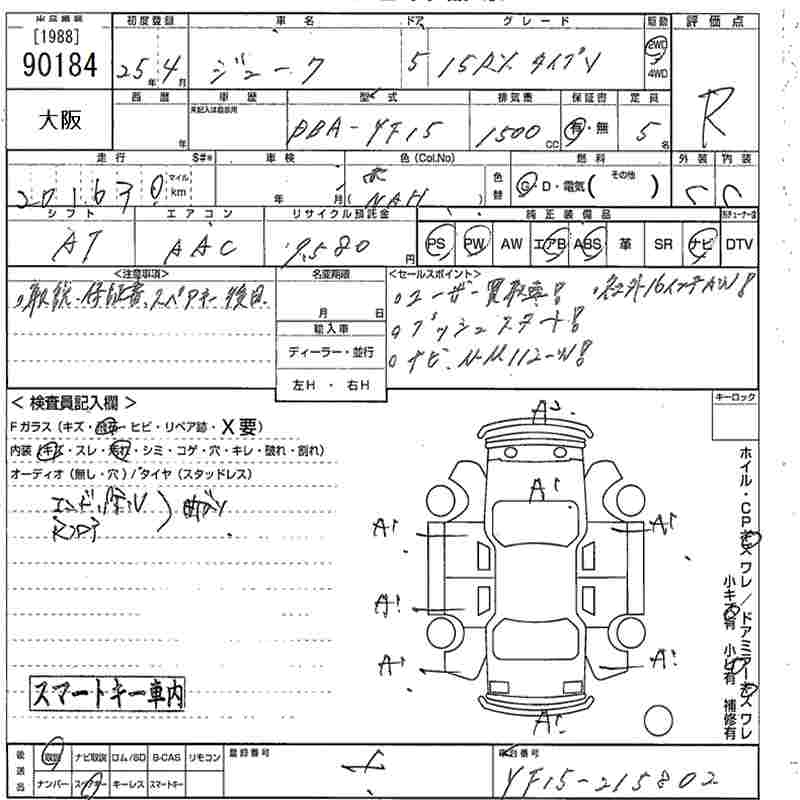 [1988]
90184
大阪
初度登録 車名 ドア グレード 駆動 評価点
25年 4月 ジューク 5 15RX タイプV 2WD 4WD
R
西暦 車歴 型式 排気量 保証書 定員
未記入は自家用
年 DBA-YF15 1500 CC 有・無 5名
走行 S#* 車検 色 (Col.No) 色替 燃料 外装 内装
マイル km 年 月 ( NAH ) G・D・電気( その他 ) C C
シフト エアコン リサイクル預託金 純正装備品
AT AAC 9,580円 PS PW AW エアB ABS 革 SR ナビ DTV
<注意事項> 名変期限 <セールスポイント>
取説・保証書、スペアキー後日 月 日 ユーザー買取車! 社外16インチAW!
輸入車 プッシュスタート!
ディーラー・並行 ナビ MM112-W!
左H ・ 右H
< 検査員記入欄 > キーロック
Fガラス (キズ・ ・ヒビ・リペア跡・X要)
内装 (キズ・スレ・汚れ・シミ・コゲ・穴・キレ・破れ・割れ)
オーディオ (無し・穴) / タイヤ (スタッドレス)
スマートキー車内
A2
A1
A1 A1
A1
A1 A1
A1
ホイル・CPキズ ワレ / ドアミラーキズ ワレ
小キズ有 小凹有 補修有
後送品 取説 ナビ取説 ロム/SD B-CAS リモコン 登録番号 車台番号
ナンバー スペアキー キーレス スマートキー YF15-215802